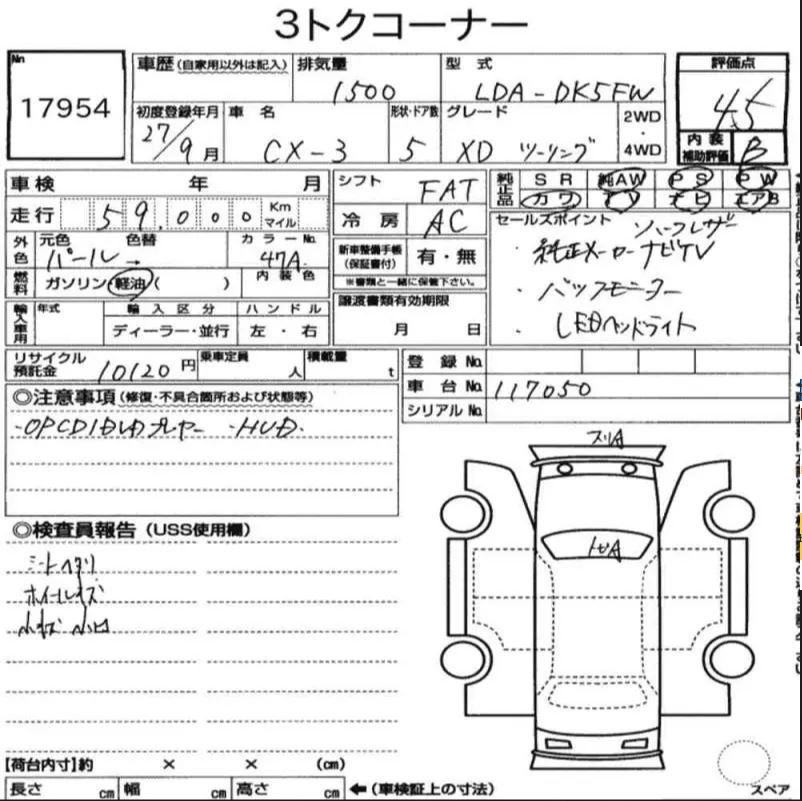 3トクコーナー
No
17954
車歴(自家用以外は記入)
排気量
1500
型式
LDA-DK5FW
評価点
4.5
初度登録年月
27/9月
車名
CX-3
形状・ドア数
5
グレード
XD ツーリング
2WD
・
4WD
内装
補助評価
B
車検 年 月
シフト
FAT
純正品
SR
純AW
PS
PW
カワ
TV
ナビ
エアB
走行
59,000
Km
マイル
冷房
AC
セールスポイント
ハーフレザー
・純正メーカーナビTV
・バックモニター
・LEDヘッドライト
外色
元色
パール
色替
カラーNo.
47A
新車整備手帳
(保証書付)
有・無
※書類と一緒に保管下さい。
燃料
ガソリン・軽油( )
内装色
輸入車用
年式
輸入区分
ディーラー・並行
ハンドル
左・右
譲渡書類有効期限
月 日
リサイクル
預託金
10120円
乗車定員
人
積載量
t
登録No.
車台No.
117050
シリアルNo.
◎注意事項(修復・不具合箇所および状態等)
・OPCD/DVDプレヤー ・HUD.
◎検査員報告(USS使用欄)
シートヘタリ
ホイールキズ
小キズ 小凹
スリA
トビA
【荷台内寸】約 × × (cm)
長さ cm
幅 cm
高さ cm
←(車検証上の寸法)
スペア